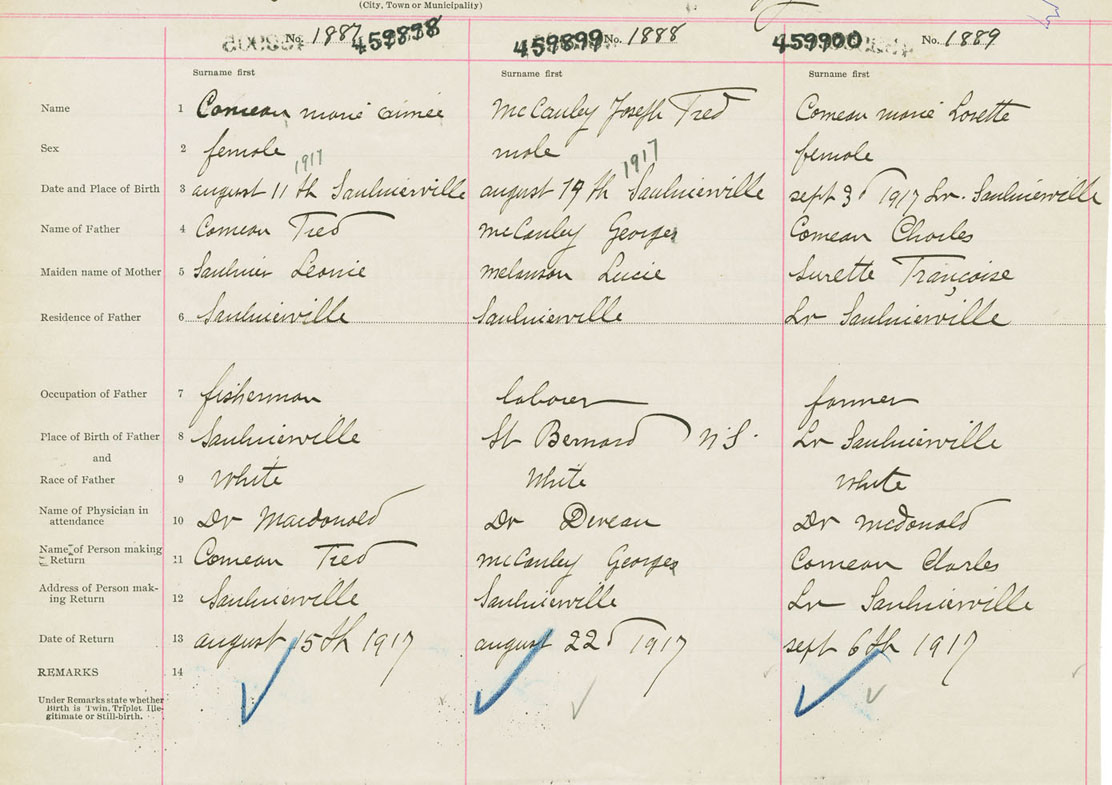 (City, Town or Municipality)
No. 1887 459898 459899 No. 1888 459900 No. 1889
Surname first Surname first Surname first
Name 1 Comeau marie aimée McCauley Joseph Fred Comeau marie Losette
Sex 2 female male female
1917 1917
Date and Place of Birth 3 august 11th Saulnierville august 19th Saulnierville sept 3d 1917 Lr. Saulnierville
Name of Father 4 Comeau Fred McCauley Georges Comeau Charles
Maiden name of Mother 5 Saulnier Leonie melanson Lucie Surette Françoise
Residence of Father 6 Saulnierville Saulnierville Lr Saulnierville
Occupation of Father 7 fisherman laborer farmer
Place of Birth of Father 8 Saulnierville St Bernard N.S. Lr Saulnierville
and
Race of Father 9 White White White
Name of Physician in
attendance 10 Dr Macdonald Dr Deveau Dr mcdonald
Name of Person making
Return 11 Comeau Fred McCauley Georges Comeau Charles
Address of Person mak-
ing Return 12 Saulnierville Saulnierville Lr Saulnierville
Date of Return 13 august 15th 1917 august 22d 1917 sept 6th 1917
REMARKS 14
Under Remarks state whether
Birth is Twin, Triplet Ille-
gitimate or Still-birth.